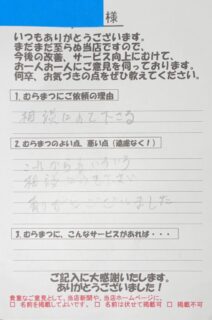 様
いつもありがとうございます。
まだまだ至らぬ当店ですので、
今後の改善、サービス向上にむけて、
お一人お一人にご意見を伺っております。
何卒、お気づきの点をぜひ教えてください。
1. むらまつにご依頼の理由
相談にのって下さる
2. むらまつのよい点、悪い点(遠慮なく!)
これからもいろいろ
相談
ありがとうございました
3. むらまつに、こんなサービスがあれば・・・
ご記入に大感謝いたします。
ありがとうございました!
貴重なご意見として、当店新聞や、当店ホームページに、
□ 名前を掲載してよいです。 □ 名前は伏せて掲載可 □ 掲載不可